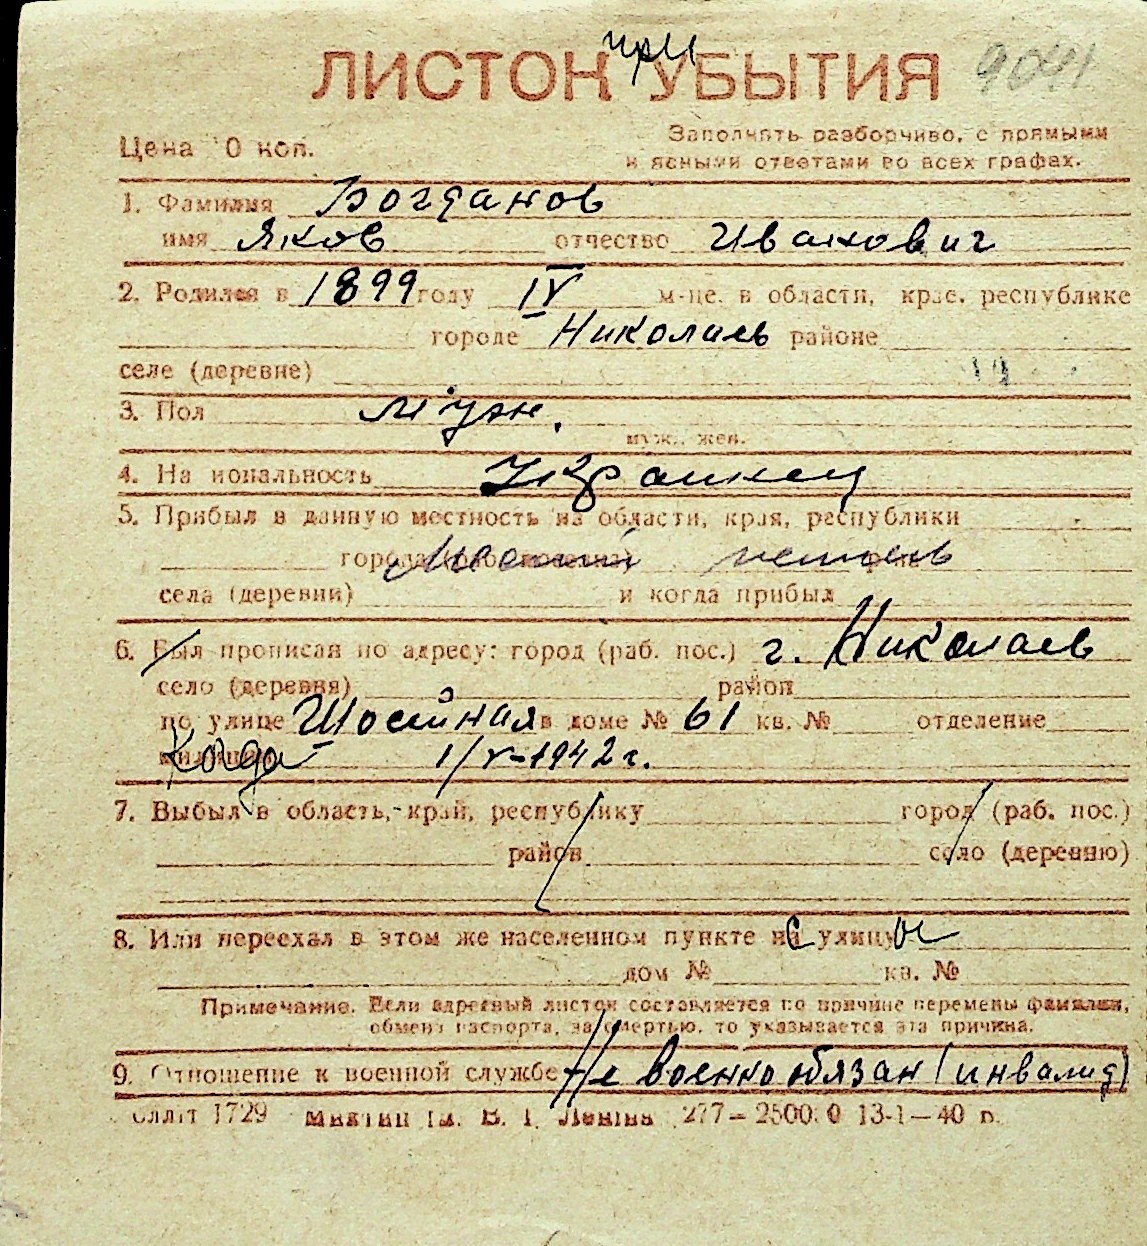 ЛИСТОК при УБЫТИЯ 9041
Цена 10 коп.
Заполнять разборчиво, с прямыми
и ясными ответами во всех графах.
1. Фамилия Богданов
имя Яков отчество Иванович
2. Родился в 1899 году IV м-це. в области, крае, республике
городе Николаев районе
селе (деревне)
3. Пол муж.
муж., жен.
4. Национальность Украинец
5. Прибыл в данную местность из области, края, республики
города (раб. поселка) житель
села (деревни) и когда прибыл
6. Был прописан по адресу: город (раб. пос.) г. Николаев
село (деревня) район
по улице Шосейная в доме № 61 кв. № отделение
милиции Когда 1/V-1942 г.
7. Выбыл в область, край, республику город (раб. пос.)
район село (деревню)
8. Или переехал в этом же населенном пункте на с улицу ы
дом № кв. №
Примечание. Если адресный листок составляется по причине перемены фамилии,
обмена паспорта, за смертью, то указывается эта причина.
9. Отношение к военной службе Не военнообязан (инвалид)
1729 Ленина 277 – 2500.0 13-1–40 г.